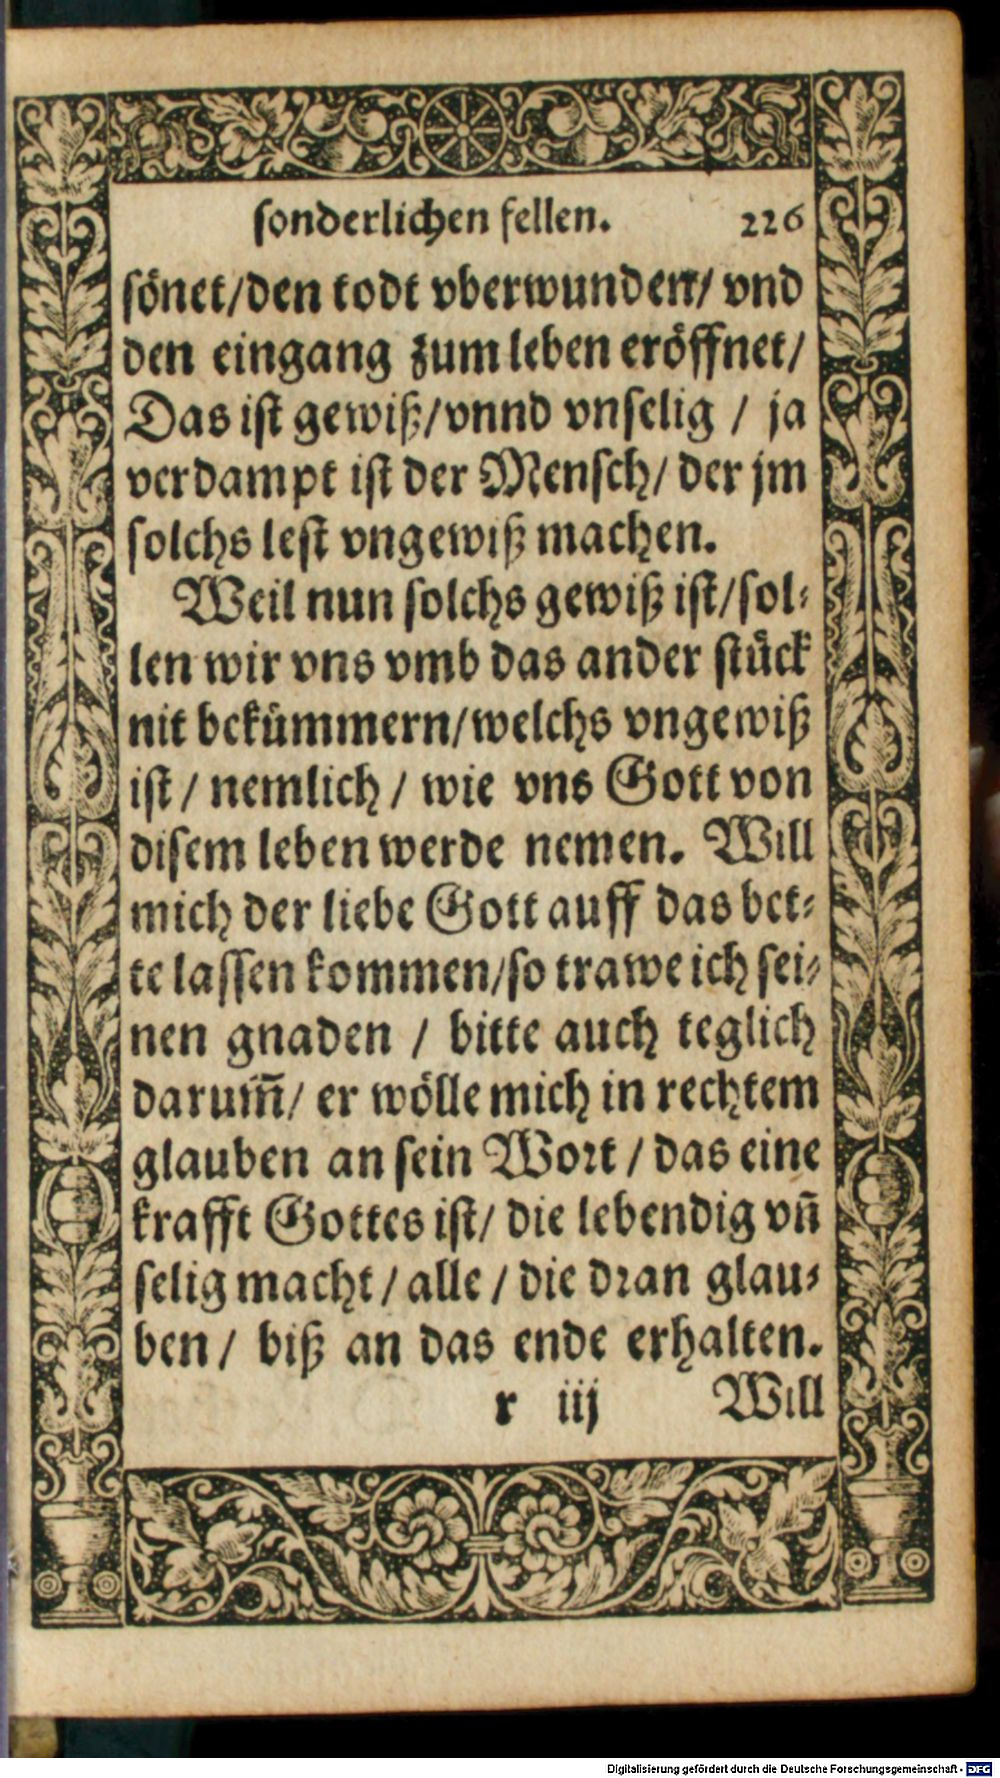 sonderlichen fellen. 226
sönet/den todt vberwunden/ vnd
den eingang zum leben eröffnet/
Das ist gewiß/vnnd vnselig / ja
verdampt ist der Mensch/ der jm
solchs lest vngewiß machen.
Weil nun solchs gewiß ist/sol⸗
len wir vns vmb das ander stück
nit bekümmern/welchs vngewiß
ist / nemlich / wie vns Gott von
disem leben werde nemen. Will
mich der liebe Gott auff das bet⸗
te lassen kommen/so trawe ich sei⸗
nen gnaden / bitte auch teglich
darum̃/ er wölle mich in rechtem
glauben an sein Wort / das eine
krafft Gottes ist/ die lebendig vñ
selig macht / alle / die dran glau⸗
ben / biß an das ende erhalten.
r iij Will
Digitalisierung gefördert durch die Deutsche Forschungsgemeinschaft - DFG